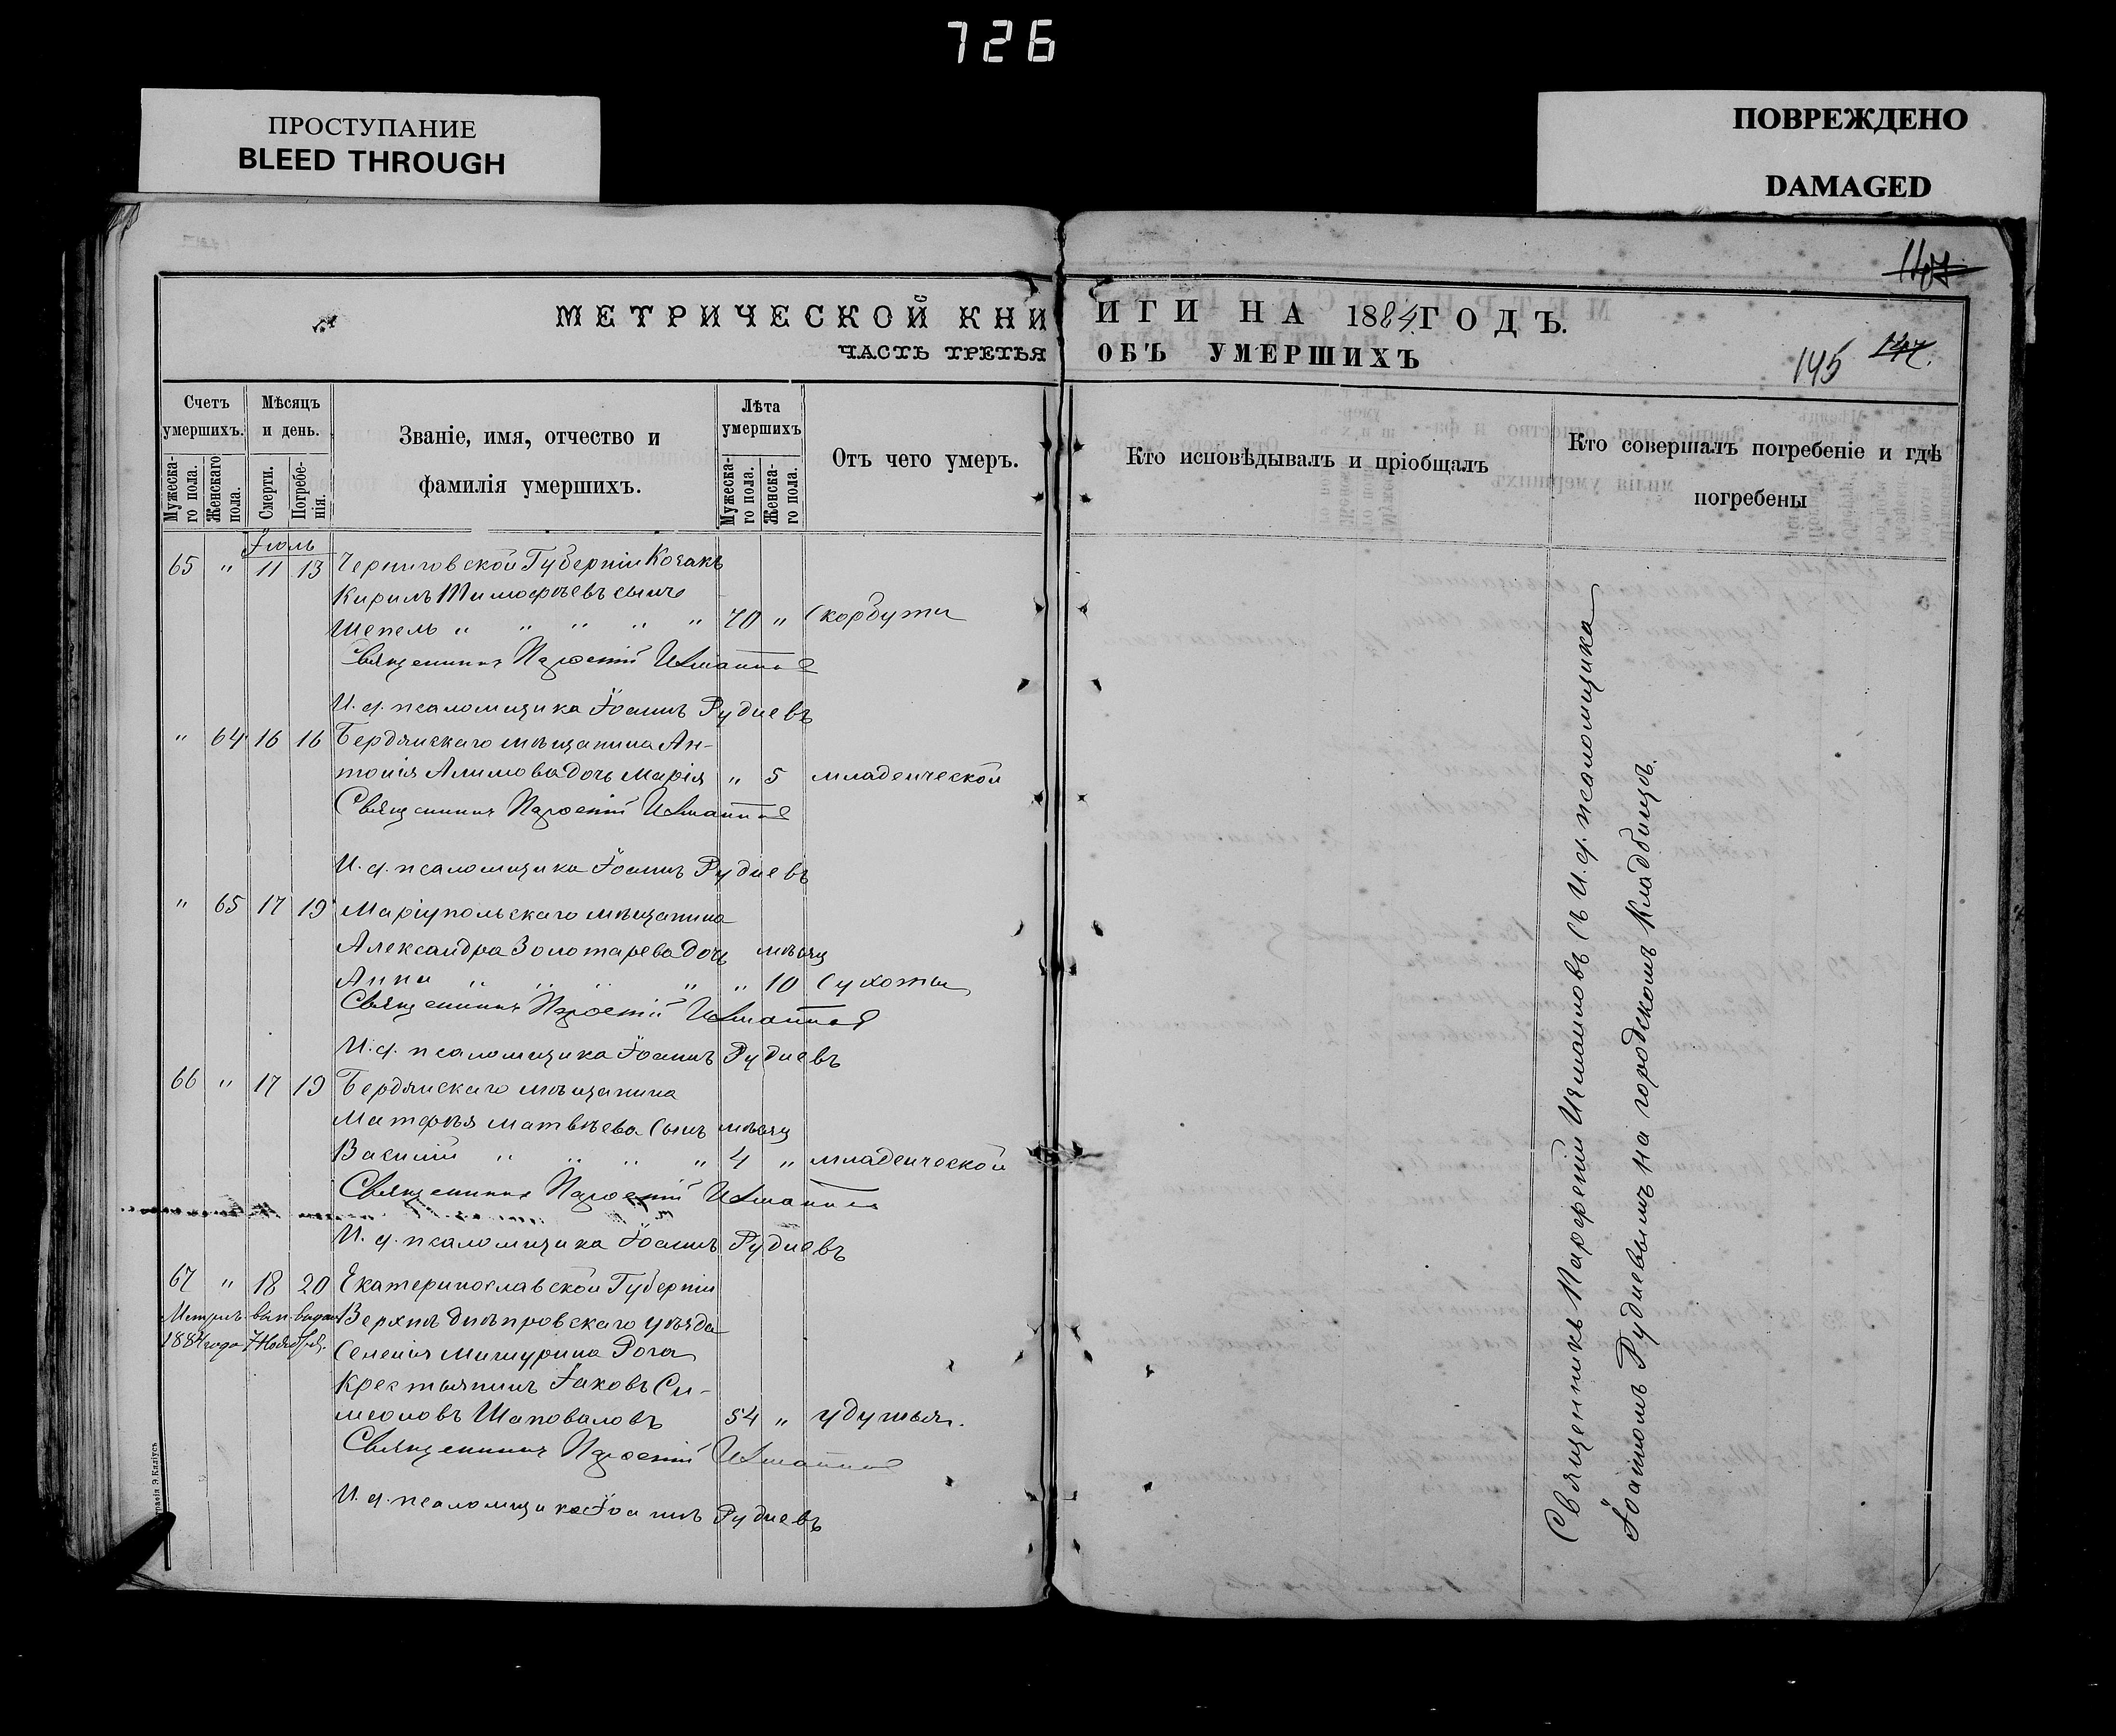 726
ПРОСТУПАНИЕ
BLEED THROUGH
ПОВРЕЖДЕНО
DAMAGED
МЕТРИЧЕСКОЙ КНИ ИГИ НА 1884 ГОДЪ.
ЧАСТЬ ТРЕТЬЯ ОБЪ УМЕРШИХЪ
145
Счетъ умершихъ.
Мужеска-го пола.
Женскаго пола.
Мѣсяцъ и день.
Смерти.
Погребе-нія.
Званіе, имя, отчество и фамилія умершихъ.
Лѣта умершихъ
Мужеска-го пола.
Женска-го пола.
Отъ чего умеръ.
Кто исповѣдывалъ и пріобщалъ
Кто совершалъ погребеніе и гдѣ погребены
Іюль
65 " 11 13 Черниговской Губерніи Козакъ
Кирилъ Тимофѣевъ сынъ
Шепель " " " " " 70 " Скорбута
Священникъ Парѳеній Измаиловъ
И. д. псаломщика Іоаннъ Рудневъ
" 64 16 16 Бердянскаго мѣщанина Ан-
тонія Алимова дочь Марія " 5 младенческой
Священникъ Парѳеній Измаиловъ
И. д. псаломщика Іоаннъ Рудневъ
" 65 17 19 Маріупольскаго мѣщанина
Александра Золотарева дочь мѣсяц
Анна " " " " " 10 Сухоты
Священникъ Парѳеній Измаиловъ
И. д. псаломщика Іоаннъ Рудневъ
66 " 17 19 Бердянскаго мѣщанина
Матфѣя Матвѣева Сынъ мѣсяц
Василій " " " " 4 " младенческой
Священникъ Парѳеній Измаиловъ
И. д. псаломщика Іоаннъ Рудневъ
67 " 18 20 Екатеринославской Губерніи
Верхнеднѣпровскаго уѣзда
1884 года 7 Ноября
Селенія Мишурина Рога
Крестьянинъ Іаковъ Си-
меоновъ Шаповаловъ 54 " удушья.
Священникъ Парѳеній Измаиловъ
И. д. псаломщика Іоаннъ Рудневъ
Священникъ Парфеній Измаиловъ съ И. д. псаломщика
Іоанномъ Рудневымъ на городскомъ Кладбищѣ.